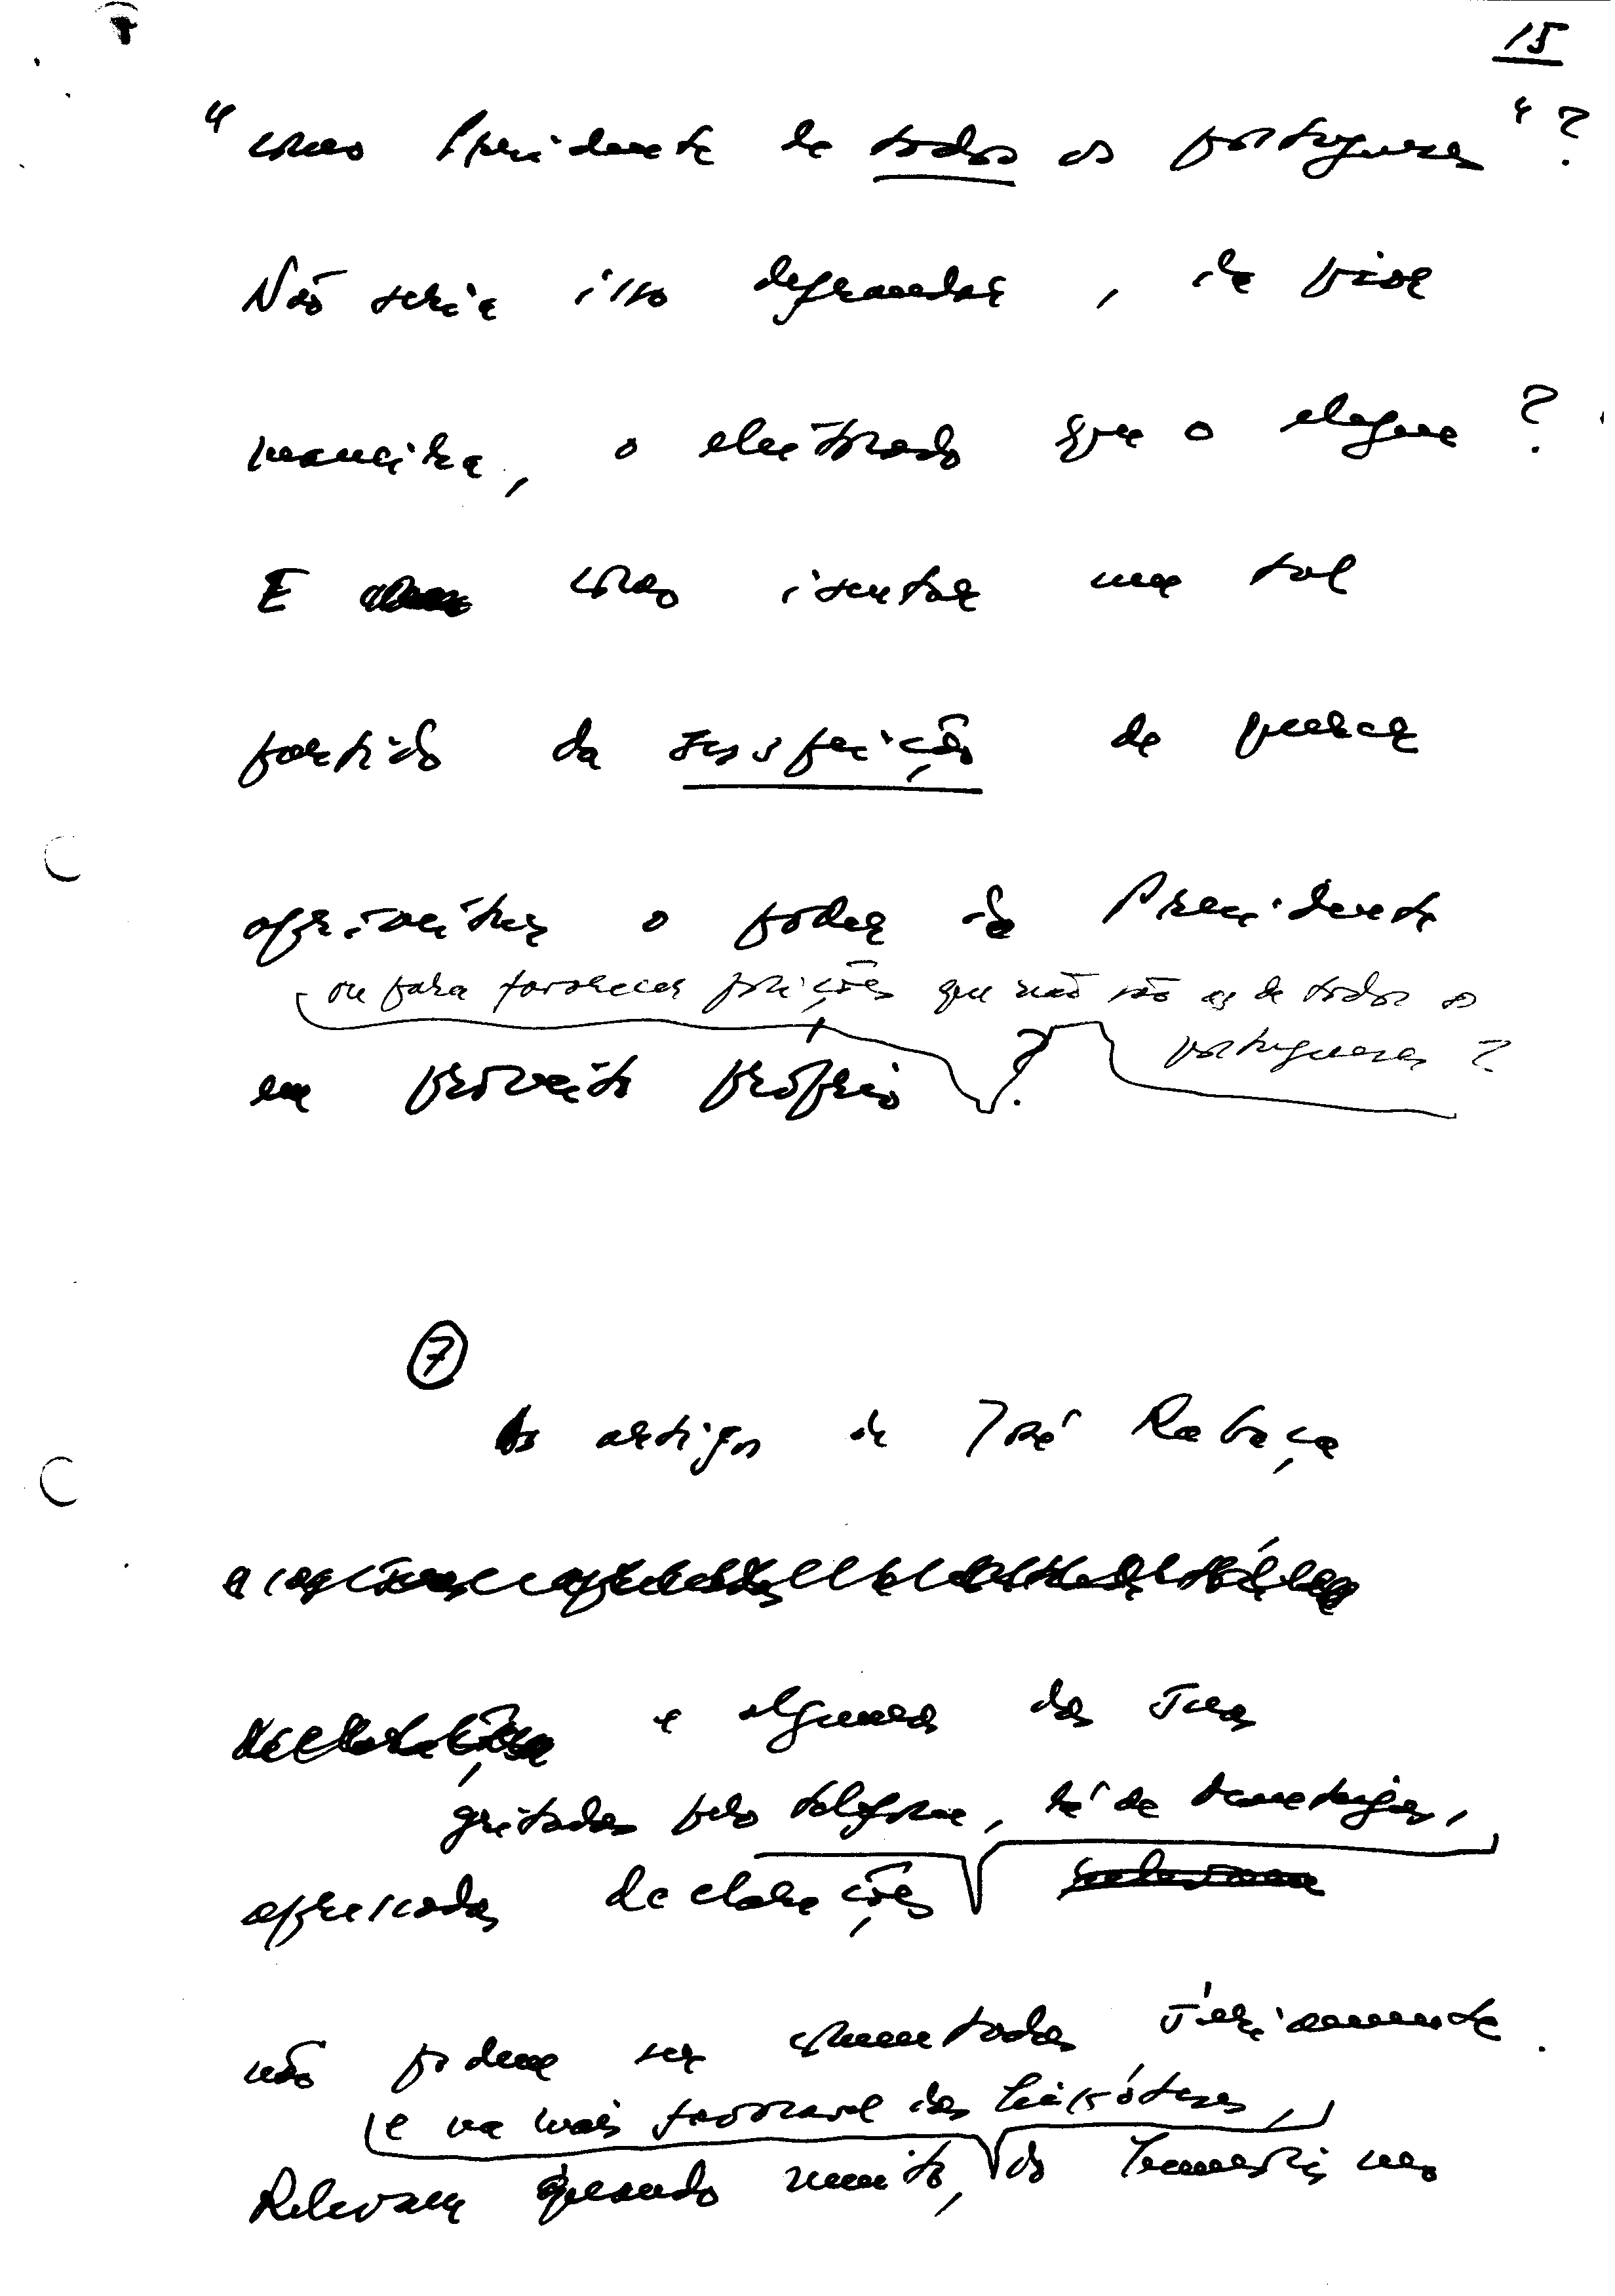 15
"como Presidente de todos os portugueses"?
Não seria isso defraudar, de vissa
maneira, o eleitorado que o elegeu?
E como isentar um tal
partido da suspeição de querer
aproveitar o poder do Presidente
ou para favorecer posições que não são as de todos os
portugueses?
em proveito próprio ?
7
Os artigos de José Rabaça
e algumas das suas
gritadas pelo telefone, há de
apressadas declarações
não podem ser comentadas sèriamente.
e na mais favorável das hipóteses,
Relevam quando muito, do